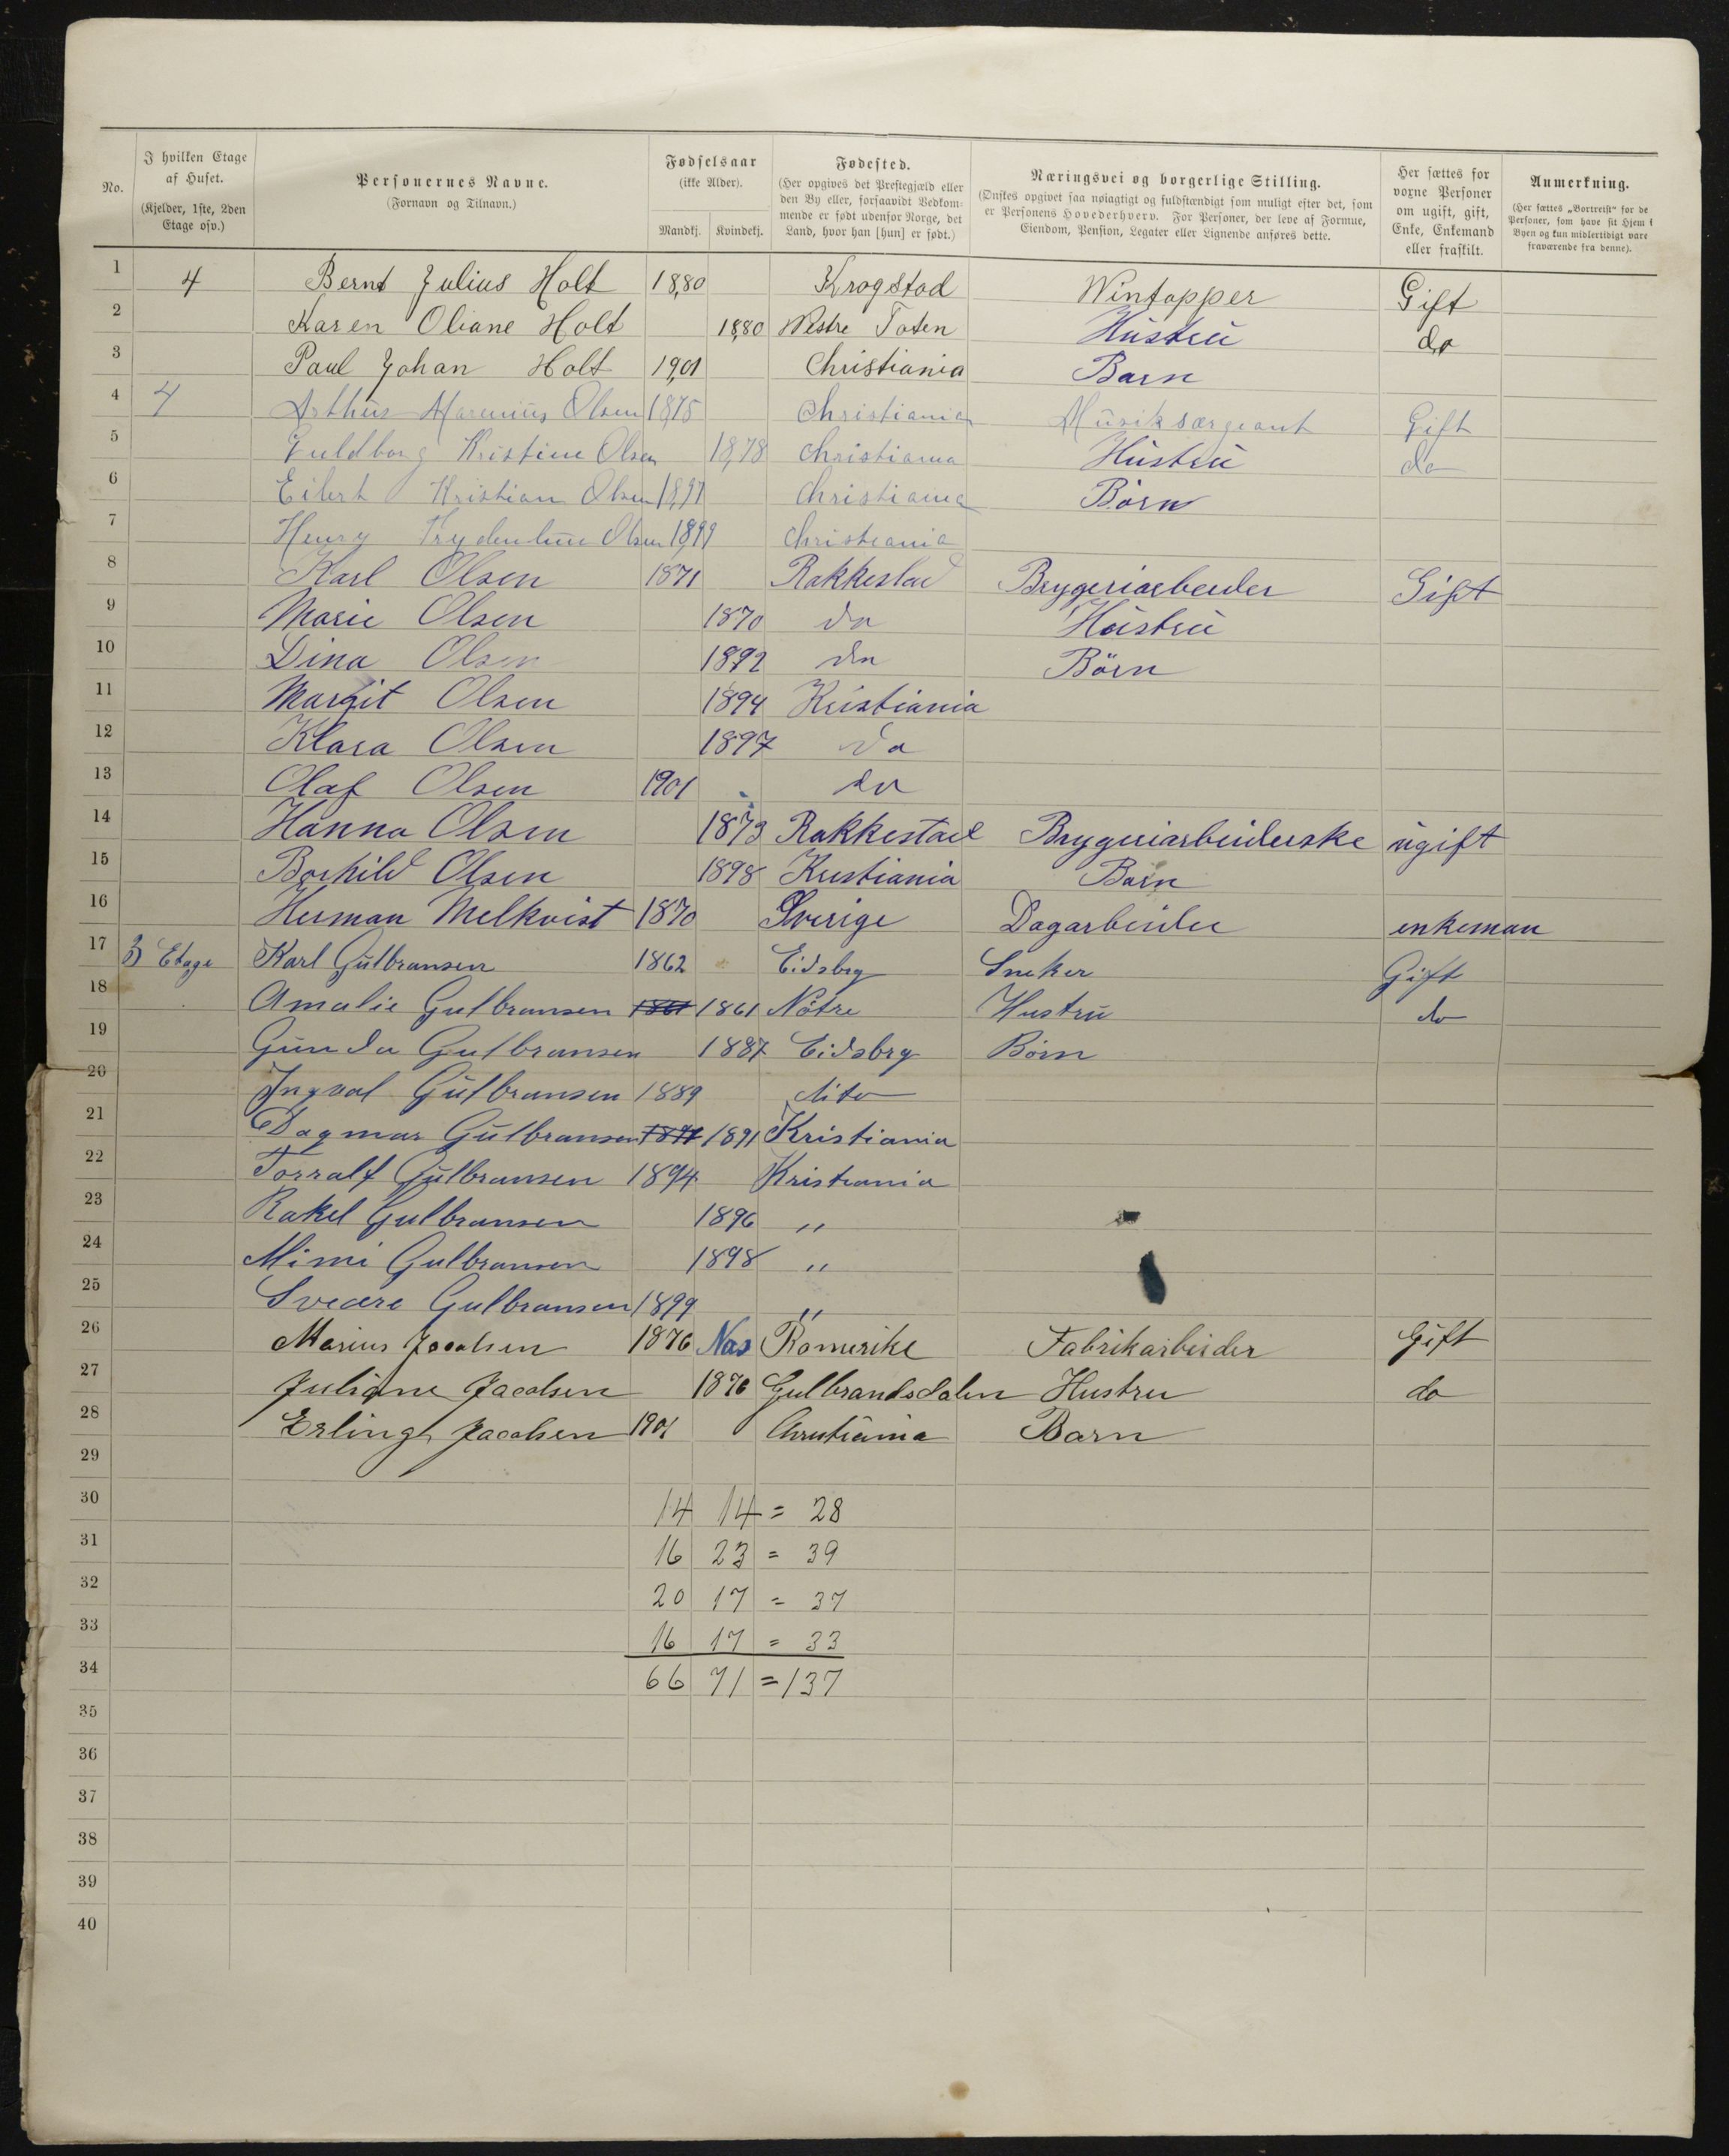 No. | I hvilken Etage af Huset. (Kjelder, 1ste, 2den Etage osv.) | Personernes Navne. (Fornavn og Tilnavn.) | Fødselsaar (ikke Alder). Mandkj. | Kvindekj. | Fødested. (Her opgives det Prestegjæld eller den By eller, forsaavidt Vedkommende er født udenfor Norge, det Land, hvor han [hun] er født.) | Næringsvei og borgerlige Stilling. (Ønskes opgivet saa nøiagtigt og fuldstændigt som muligt efter det, som er Personens Hovederhverv. For Personer, der leve af Formue, Eiendom, Pension, Legater eller Lignende anføres dette. | Her sættes for voxne Personer om ugift, gift, Enke, Enkemand eller fraskilt. | Anmerkning. (Her sættes „Bortreist" for de Personer, som have sit Hjem i Byen og kun midlertidigt vare fraværende fra denne).
1 4 Bernt Julius Holt 1880 Krogstad Wintapper Gift
2 Karen Oliane Holt 1880 Westre Toten Hustru do
3 Paul Johan Holt 1901 Christiania Barn
4 4 Arthur Marinius Olsen 1875 Christiania Musiksærgeant Gift
5 Guldborg Kristine Olsen 1878 Christiania Hustru do
6 Eilert Kristian Olsen 1897 Christiania Børn
7 Henry Olsen 1899 Christiania
8 Karl Olsen 1871 Rakkestad Brygeriarbeider Gift
9 Marie Olsen 1870 do Hustru
10 Dina Olsen 1892 do Börn
11 Margit Olsen 1894 Kristiania
12 Klara Olsen 1897 do
13 Olaf Olsen 1901 do
14 Hanna Olsen 1873 Rakkestad Brygeriarbeiderske ugift
15 Borhild Olsen 1898 Kristiania Barn
16 Herman Melkvist 1870 Sverige Dagarbeider enkeman
17 3 Etage Karl Gulbransen 1862 Eidsbrg Sneker Gift
18 Amalie Gulbransen 1861 1861 Nötre Hustru do
19 Gunda Gulbransen 1887 Eidsbrg Börn
20 Ingval Gulbransen 1889 dito
21 Dagmar Gulbransen 1891 1891 Kristiania
22 Torralf Gulbransen 1894 Kristiania
23 Rakel Gulbransen 1896 "
24 Mimi Gulbransen 1898 "
25 Sveære Gulbransen 1899 "
26 Marius Jacobsen 1876 Nas Romerike Fabrikarbeider Gift
27 Juliane Jacobsen 1876 Gulbrandsdalen Hustru do
28 Erling Jacobsen 1901 Christiania Barn
29
30 14 14 = 28
31 16 23 = 39
32 20 17 = 37
33 16 17 = 33
34 66 71 = 137
35
36
37
38
39
40